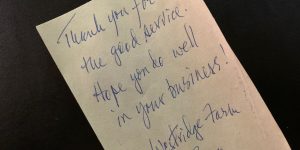 Thank you for
the good service.
Hope you do well
in your business!
Westridge